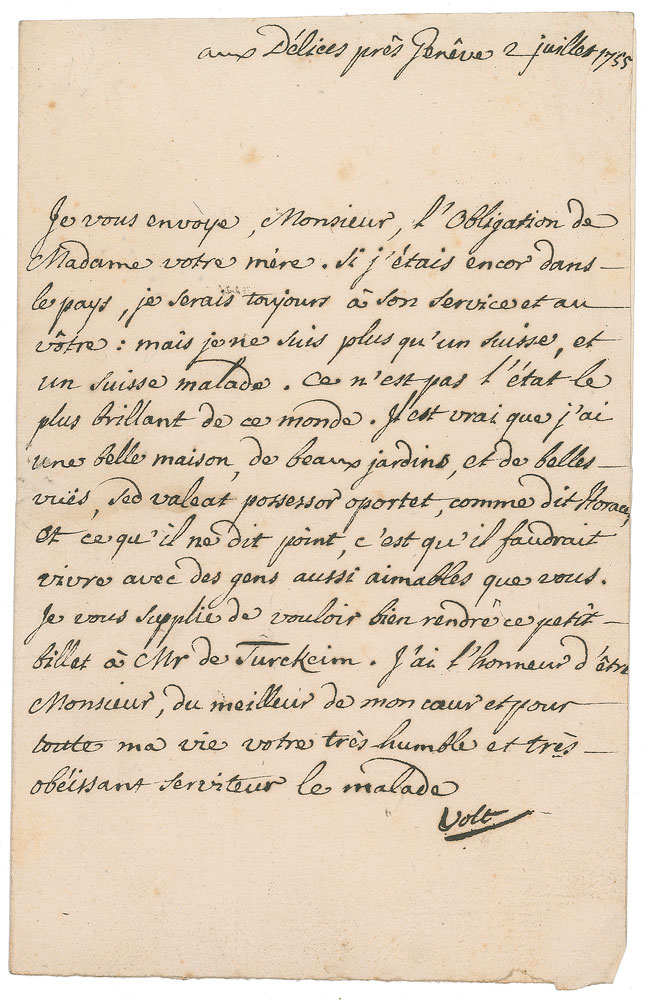 aux Délices près Genêve 2 juillet 1755
Je vous envoye, Monsieur, l'Obligation de
Madame votre mère. Si j'étais encor dans
le pays, je serais toujours à son service et au
vôtre : mais je ne suis plus qu'un suisse, et
un suisse malade. Ce n'est pas l'état le
plus brillant de ce monde. Il est vrai que j'ai
une belle maison, de beaux jardins, et de belles
vuës, sed valeat possessor oportet, comme dit Horace,
et ce qu'il ne dit point, c'est qu'il faudrait
vivre avec des gens aussi aimables que vous.
Je vous supplie de vouloir bien rendre ce petit
billet à Mr de Turckeim. J'ai l'honneur d'être
Monsieur, du meilleur de mon cœur et pour
toute ma vie votre très humble et très
obéissant serviteur le malade
Volt